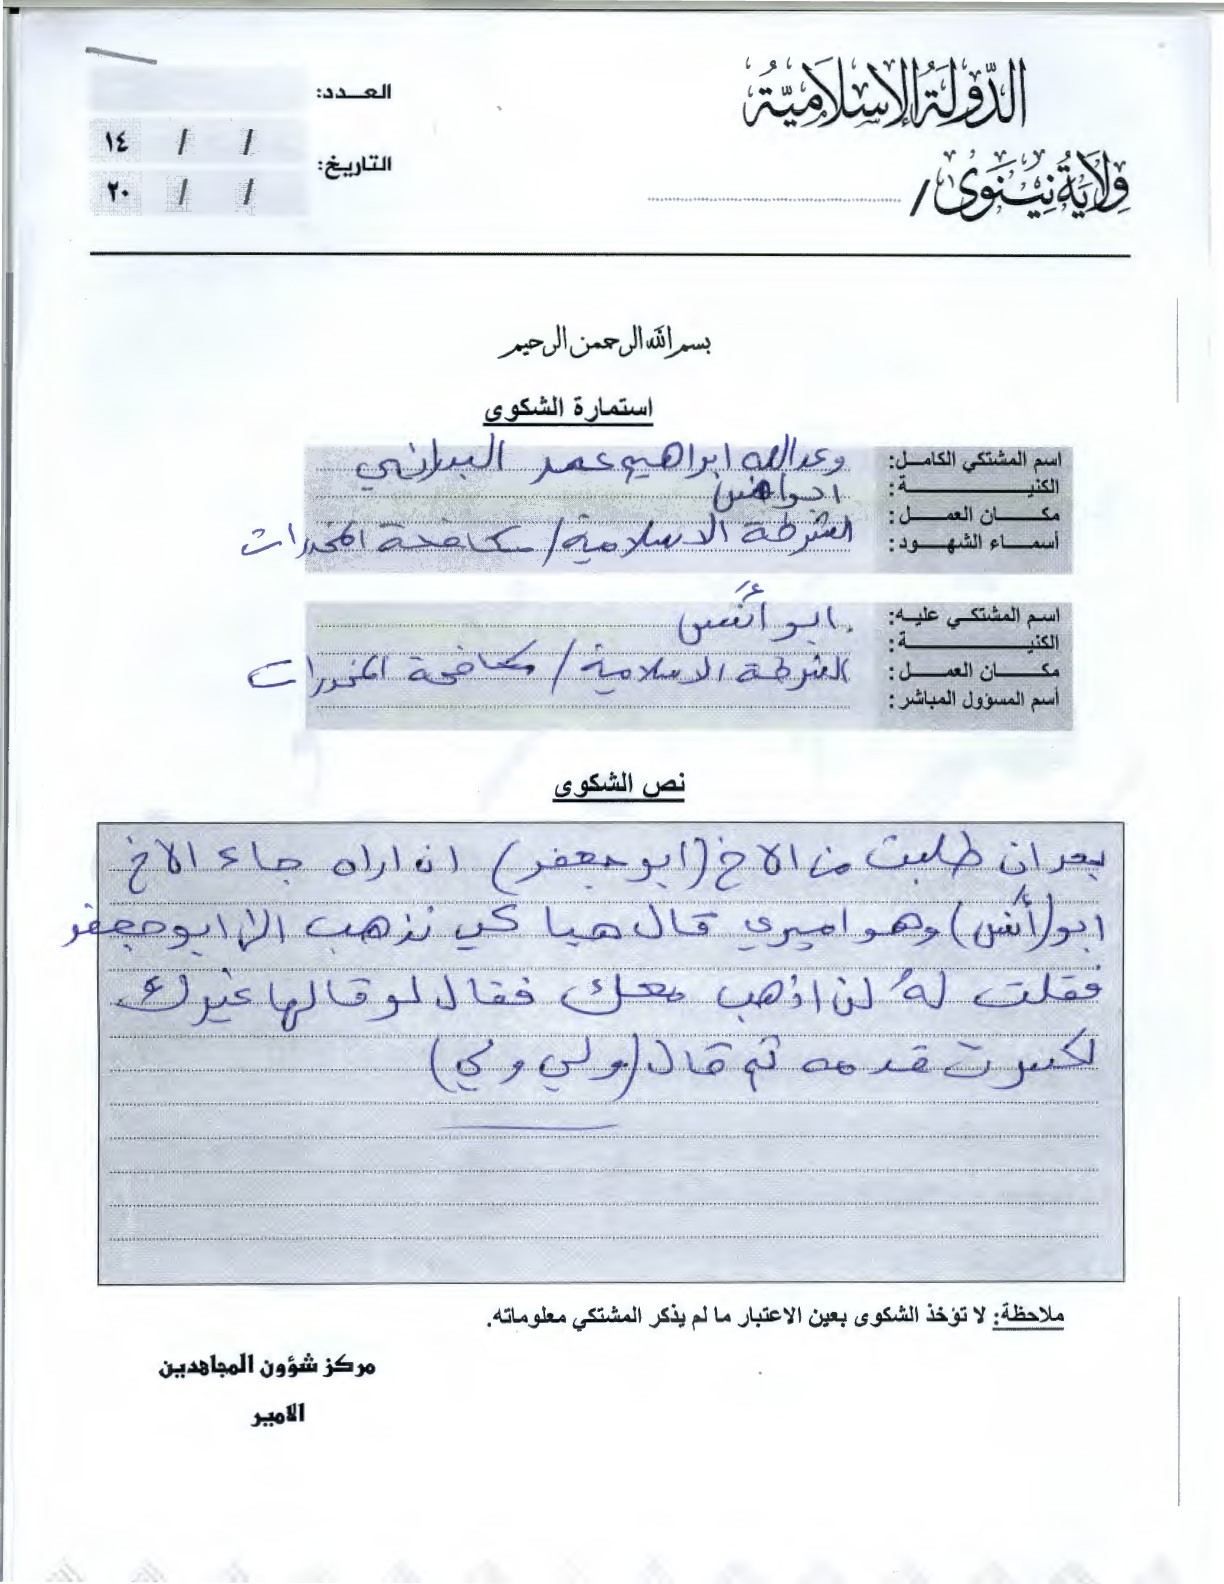 الدولة الإسلامية
ولاية نينوى /
العدد:
التاريخ:
/ / ١٤
/ / ٢٠
بسم الله الرحمن الرحيم
استمارة الشكوى
اسم المشتكي الكامل: وعدالله ابراهيم عمر البدراني
الكنية: ابو
مكان العمل: الشرطة الاسلامية / مكافحة المخدرات
أسماء الشهود:
اسم المشتكي عليه: ابو أنس
الكنية:
مكان العمل: الشرطة الاسلامية / مكافحة المخدرات
أسم المسؤول المباشر:
نص الشكوى
بعد ان طلبت من الاخ (ابو جعفر) ان اراه جاء الاخ
ابو (أنس) وهو اميري قال هيا كي نذهب الى ابو جعفر
فقلت لهُ لن اذهب معك فقال لو قالها غيرك
لكسرت قدمه ثم قال (ولي ولي)
ملاحظة: لا تؤخذ الشكوى بعين الاعتبار ما لم يذكر المشتكي معلوماته.
مركز شؤون المجاهدين
الامير